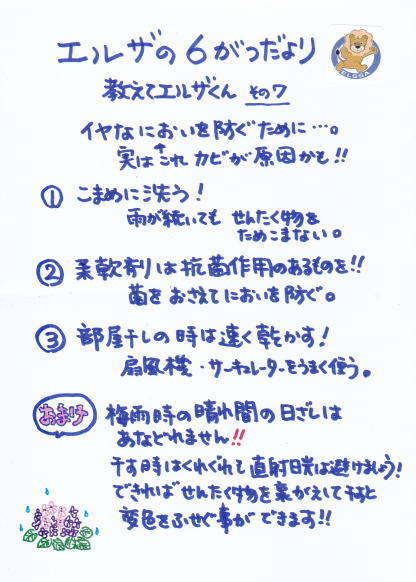 エルザの6がつだより
ELGSA
教えてエルザくん その7
イヤなにおいを防ぐために…。
実は これ カビが原因かも!!
① こまめに洗う!
雨が続いても せんたく物を
ためこまない。
② 柔軟剤は抗菌作用のあるものを!!
菌をおさえてにおいを防ぐ。
③ 部屋干しの時は速く乾かす!
扇風機・サーキュレーターをうまく使う。
おまけ
梅雨時の晴れ間の日ざしは
あなどれません!!
干す時はくれぐれも直射日光は避けましょう!
できればせんたく物を裏がえして干すと
変色をふせぐ事ができます!!